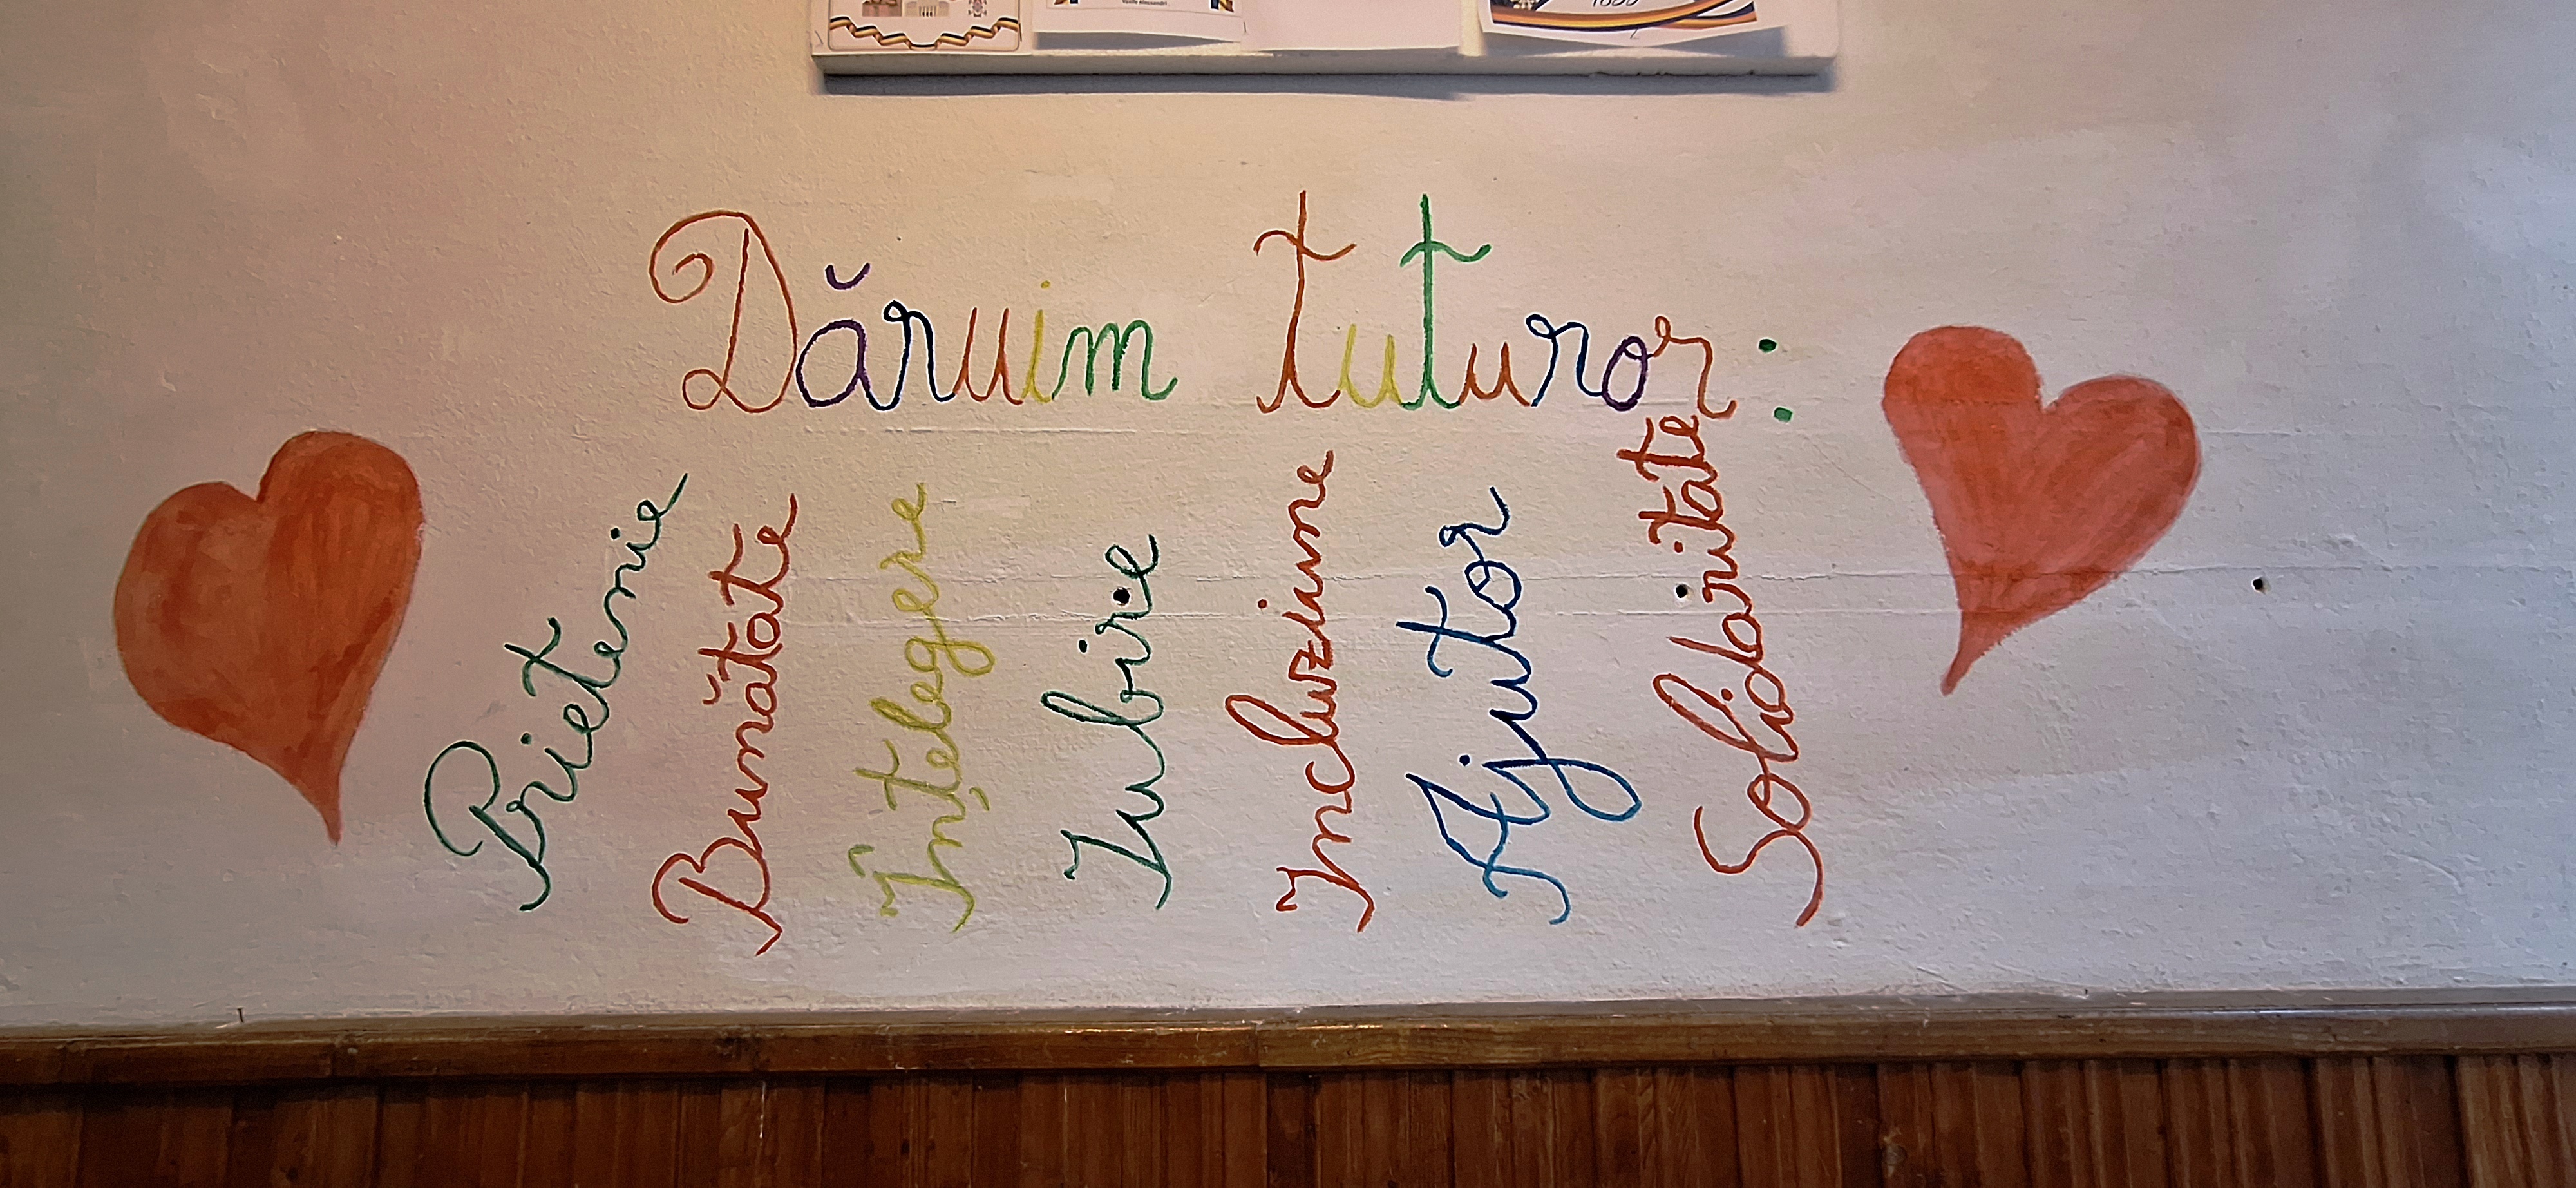 Vasile Alecsandri
Dăruim tuturor:
Prietenie
Bunătate
Înțelegere
Iubire
Incluziune
Ajutor
Solidaritate